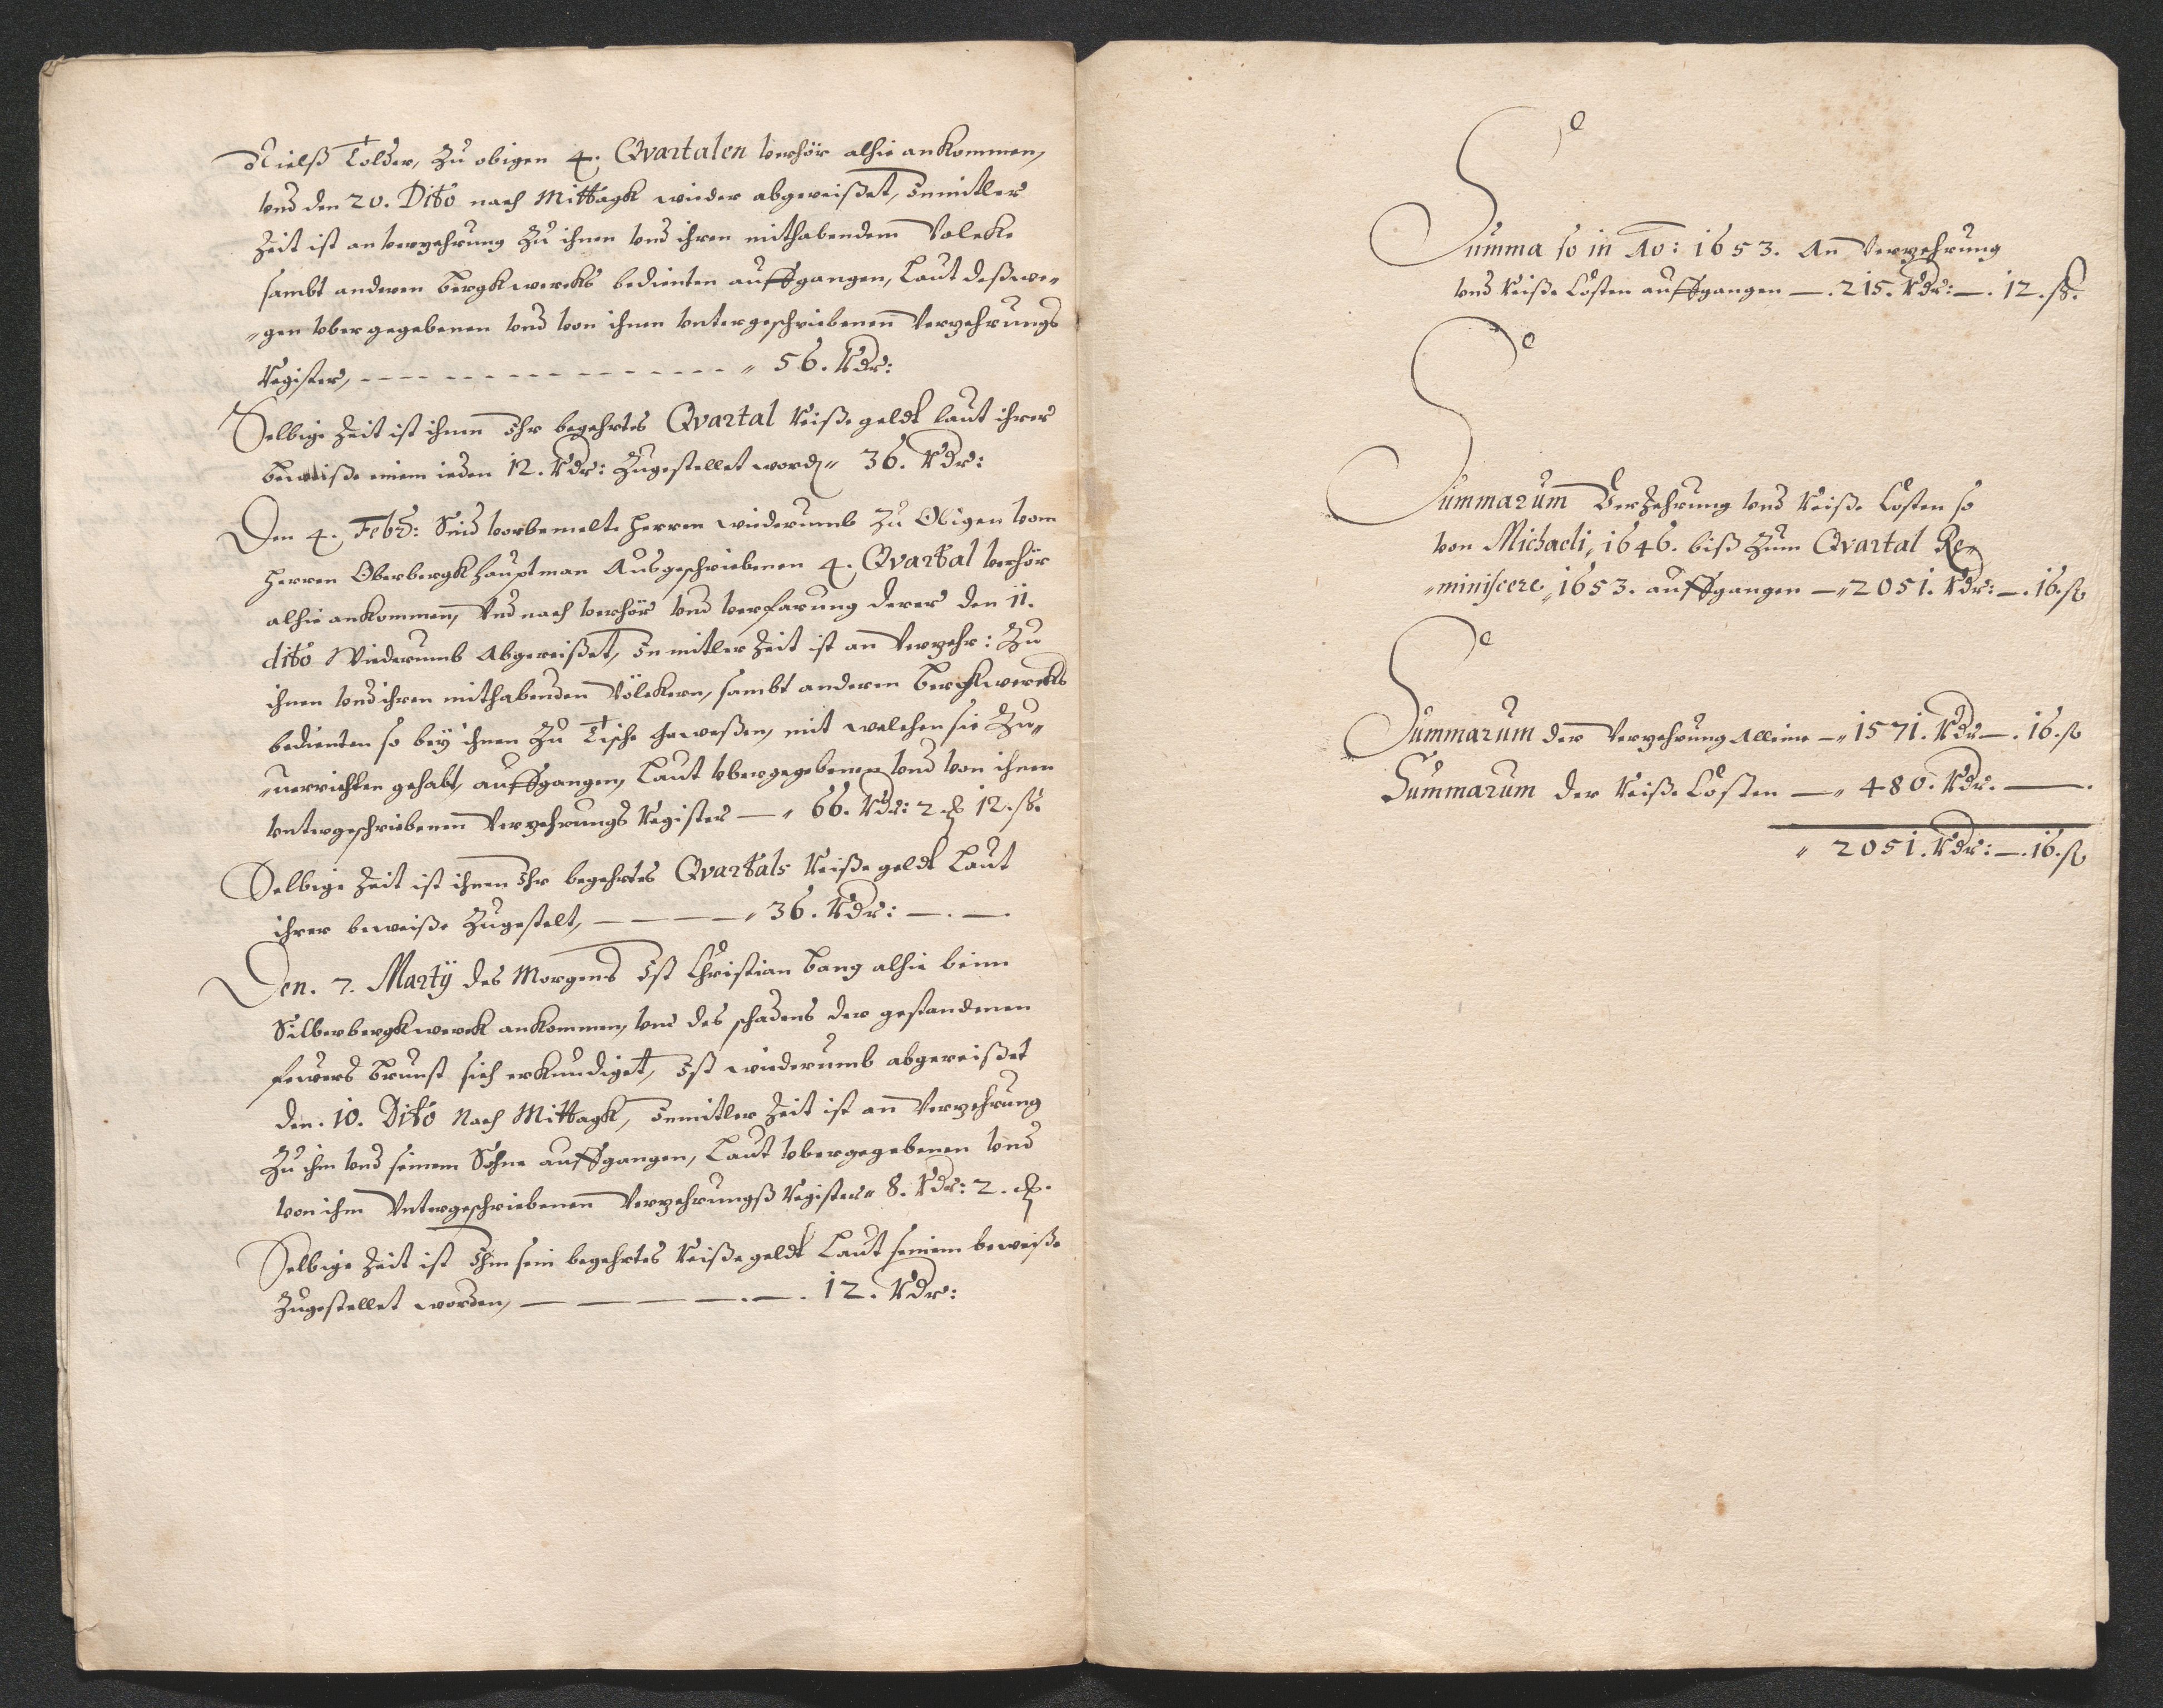 Nielß Tolder, Zu obigen 4. Qvartalen verhör alhie ankommen,
vnd den 20. Dito nach Mittagk wieder abgereißet, Inmitler
Zeit ist an verzehrung Zu ihnen vnd ihren mithabendem Volcke
sambt anderen bergkwercks bedienten auffgangen, Laut deßwe„
„gen vbergegebenen vnd von ihnen vntergeschriebenen Verzehrungs
Register, - - - - - - - - - - - - - - „ 56. Rdr:
Selbige Zeit ist ihnen Ihr begehrtes Qvartal Reißegeldt laut ihrer
beweiße einem ieden 12. Rdr: Zugestellet word„ 36. Rdr:
Den 4. Febr: Seind vorbemelte Herren wiederumb Zu Obigen vom
Herren Oberbergkhauptman Ausgeschriebenen 4. Qvartal verhör
alhie ankommen, vnd nach verhör vnd verfarung derer den 11.
dito Wiederumb Abgereißet, In mitler Zeit ist an Verzehr: Zu
ihnen vnd ihren mithabenden Völckern, sambt anderen Bergkwercks
bedienten so bey ihnen Zu Tische geweßen, mit welchen sie Zu„
„uerrichten gehabt, auffgangen, Laut vbergegebenen vnd von ihnen
vntergeschriebenen Verzehrungs Register — „ 66. Rdr: 2 ȹ 12. ß.
Selbige Zeit ist ihnen Ihr begehrtes Qvartals Reißegeldt Laut
ihrer beweiße Zugestelt, — — — „ 36. Rdr: —. —.
Den. 7. Martij des Morgens Ist Christian Bang alhie beim
Silberbergkwerck ankommen, vnd des schadens der gestandenen
fewers Brunst sich erkundiget, Ist wiederumb abgereißet
den. 10. Dito Nach Mittagk, Inmitler Zeit ist an Verzehrung
Zu ihm vnd seinem Sohne auffgangen, Laut vbergegebenen vnd
von ihm Vntergeschriebenen Verzehrungß Register „ 8. Rdr: 2. ȹ.
Selbige Zeit ist Ihm sein begehrtes Reißegeldt Laut seinem beweiße
Zugestellet worden, — — — — . —. 12. Rdr:
Summa so in Ao: 1653. An Verzehrung
vnd Reiße Costen auffgangen —. 215. Rdr: —. 12. ß.
Summarum Verzehrung vnd Reiße Costen so
von Michaeli, 1646. biß Zum Qvartal Re„
„miniscere, 1653. auffgangen — „ 2051. Rdr: —. 16. ß
Summarum der Verzehrung Alleine — „ 1571. Rdr —. 16. ß
Summarum der Reiße Costen — „ 480. Rdr. —.
„ 2051. Rdr: —. 16. ß